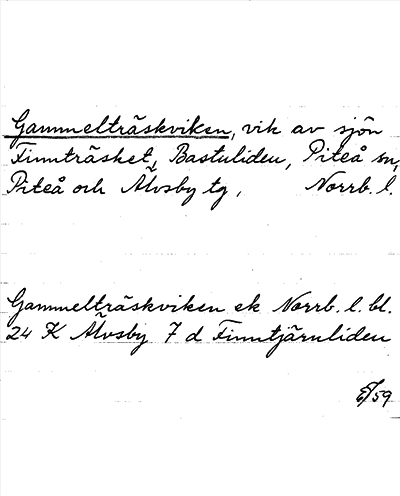 Gammelträskviken, vik av sjön
Finnträsket, Bastuliden, Piteå sn,
Piteå och Älvsby tg, Norrb. l.
Gammelträskviken ek Norrb. l. bl.
24 K Älvsby 7 d Finntjärnliden
6/59